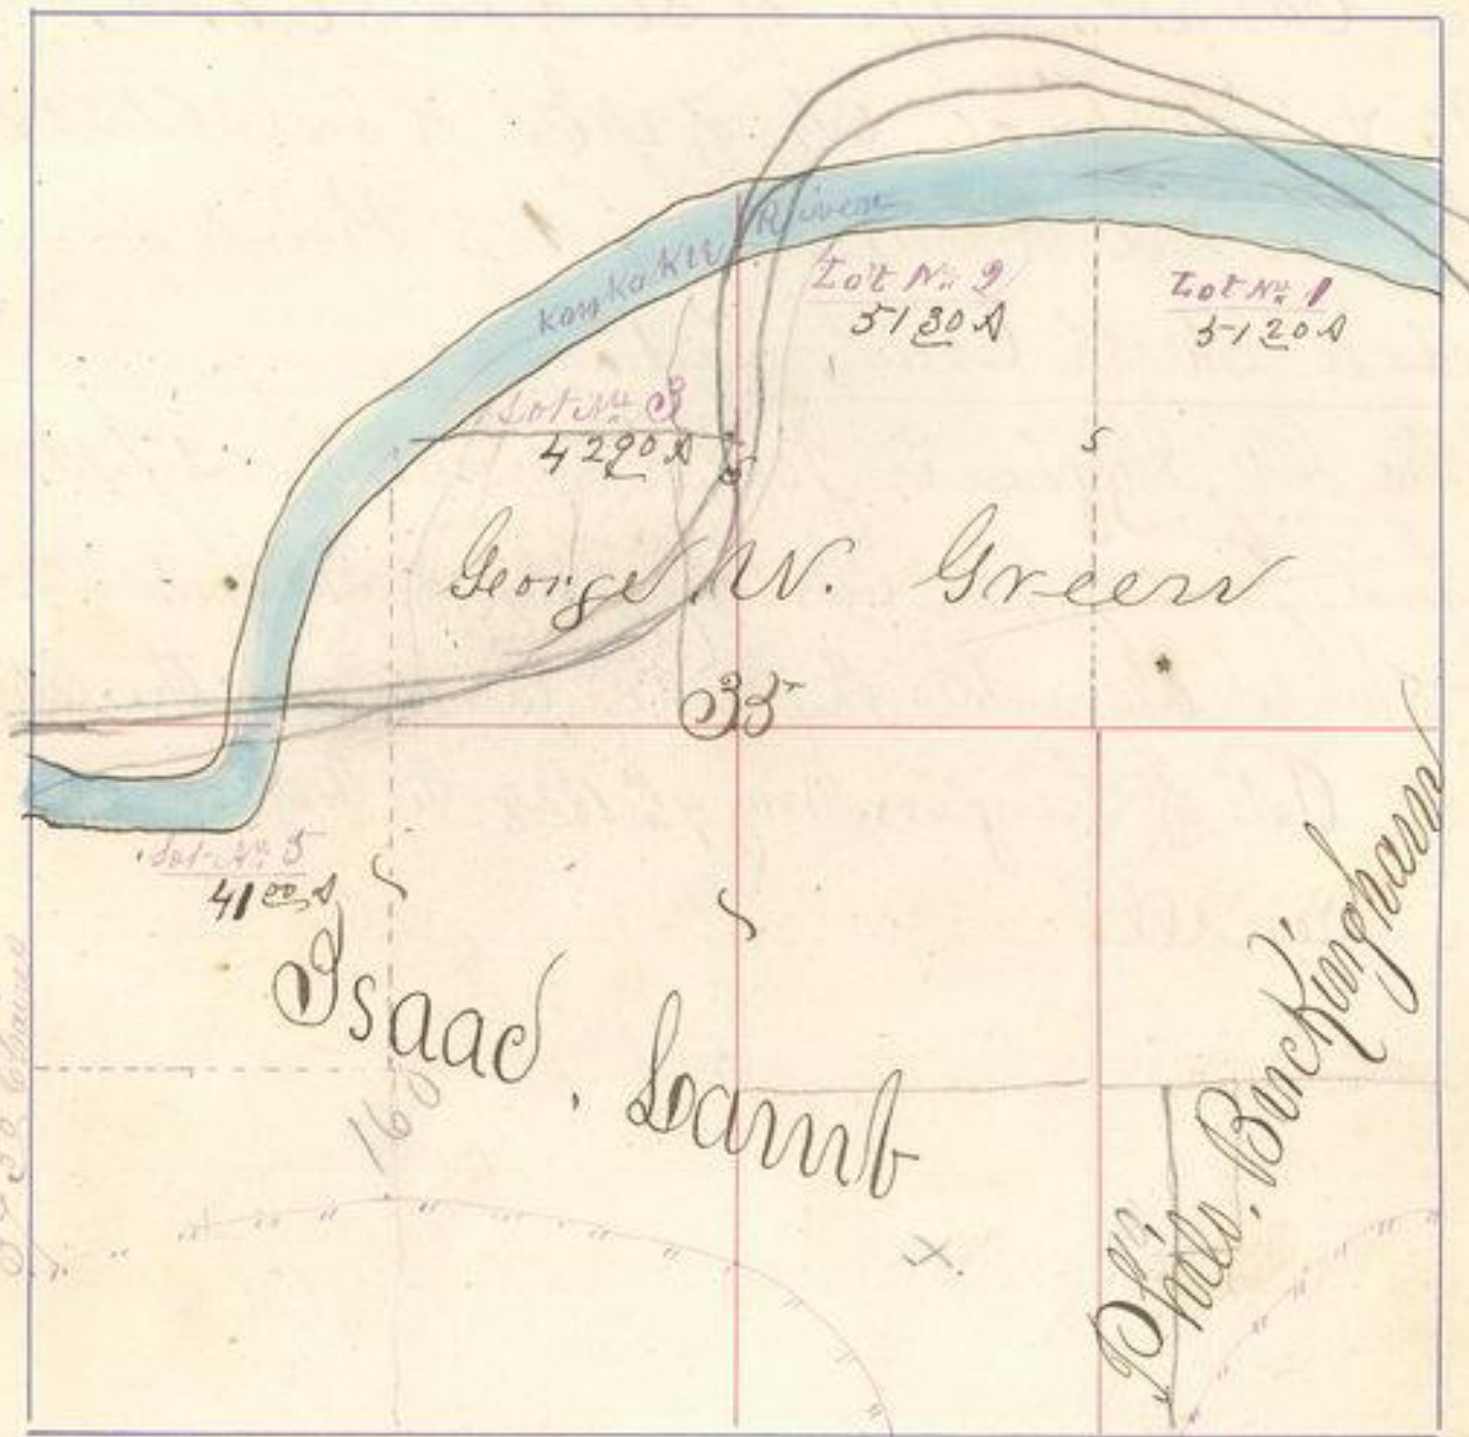 Kankakee River
Lot No. 2
51 30 A
Lot No. 1
51 20 A
Lot No. 3
42 90 A
George W. Green
35
Lot No. 5
41 00 A
Isaac. Lamb
16
Philo. Buckingham